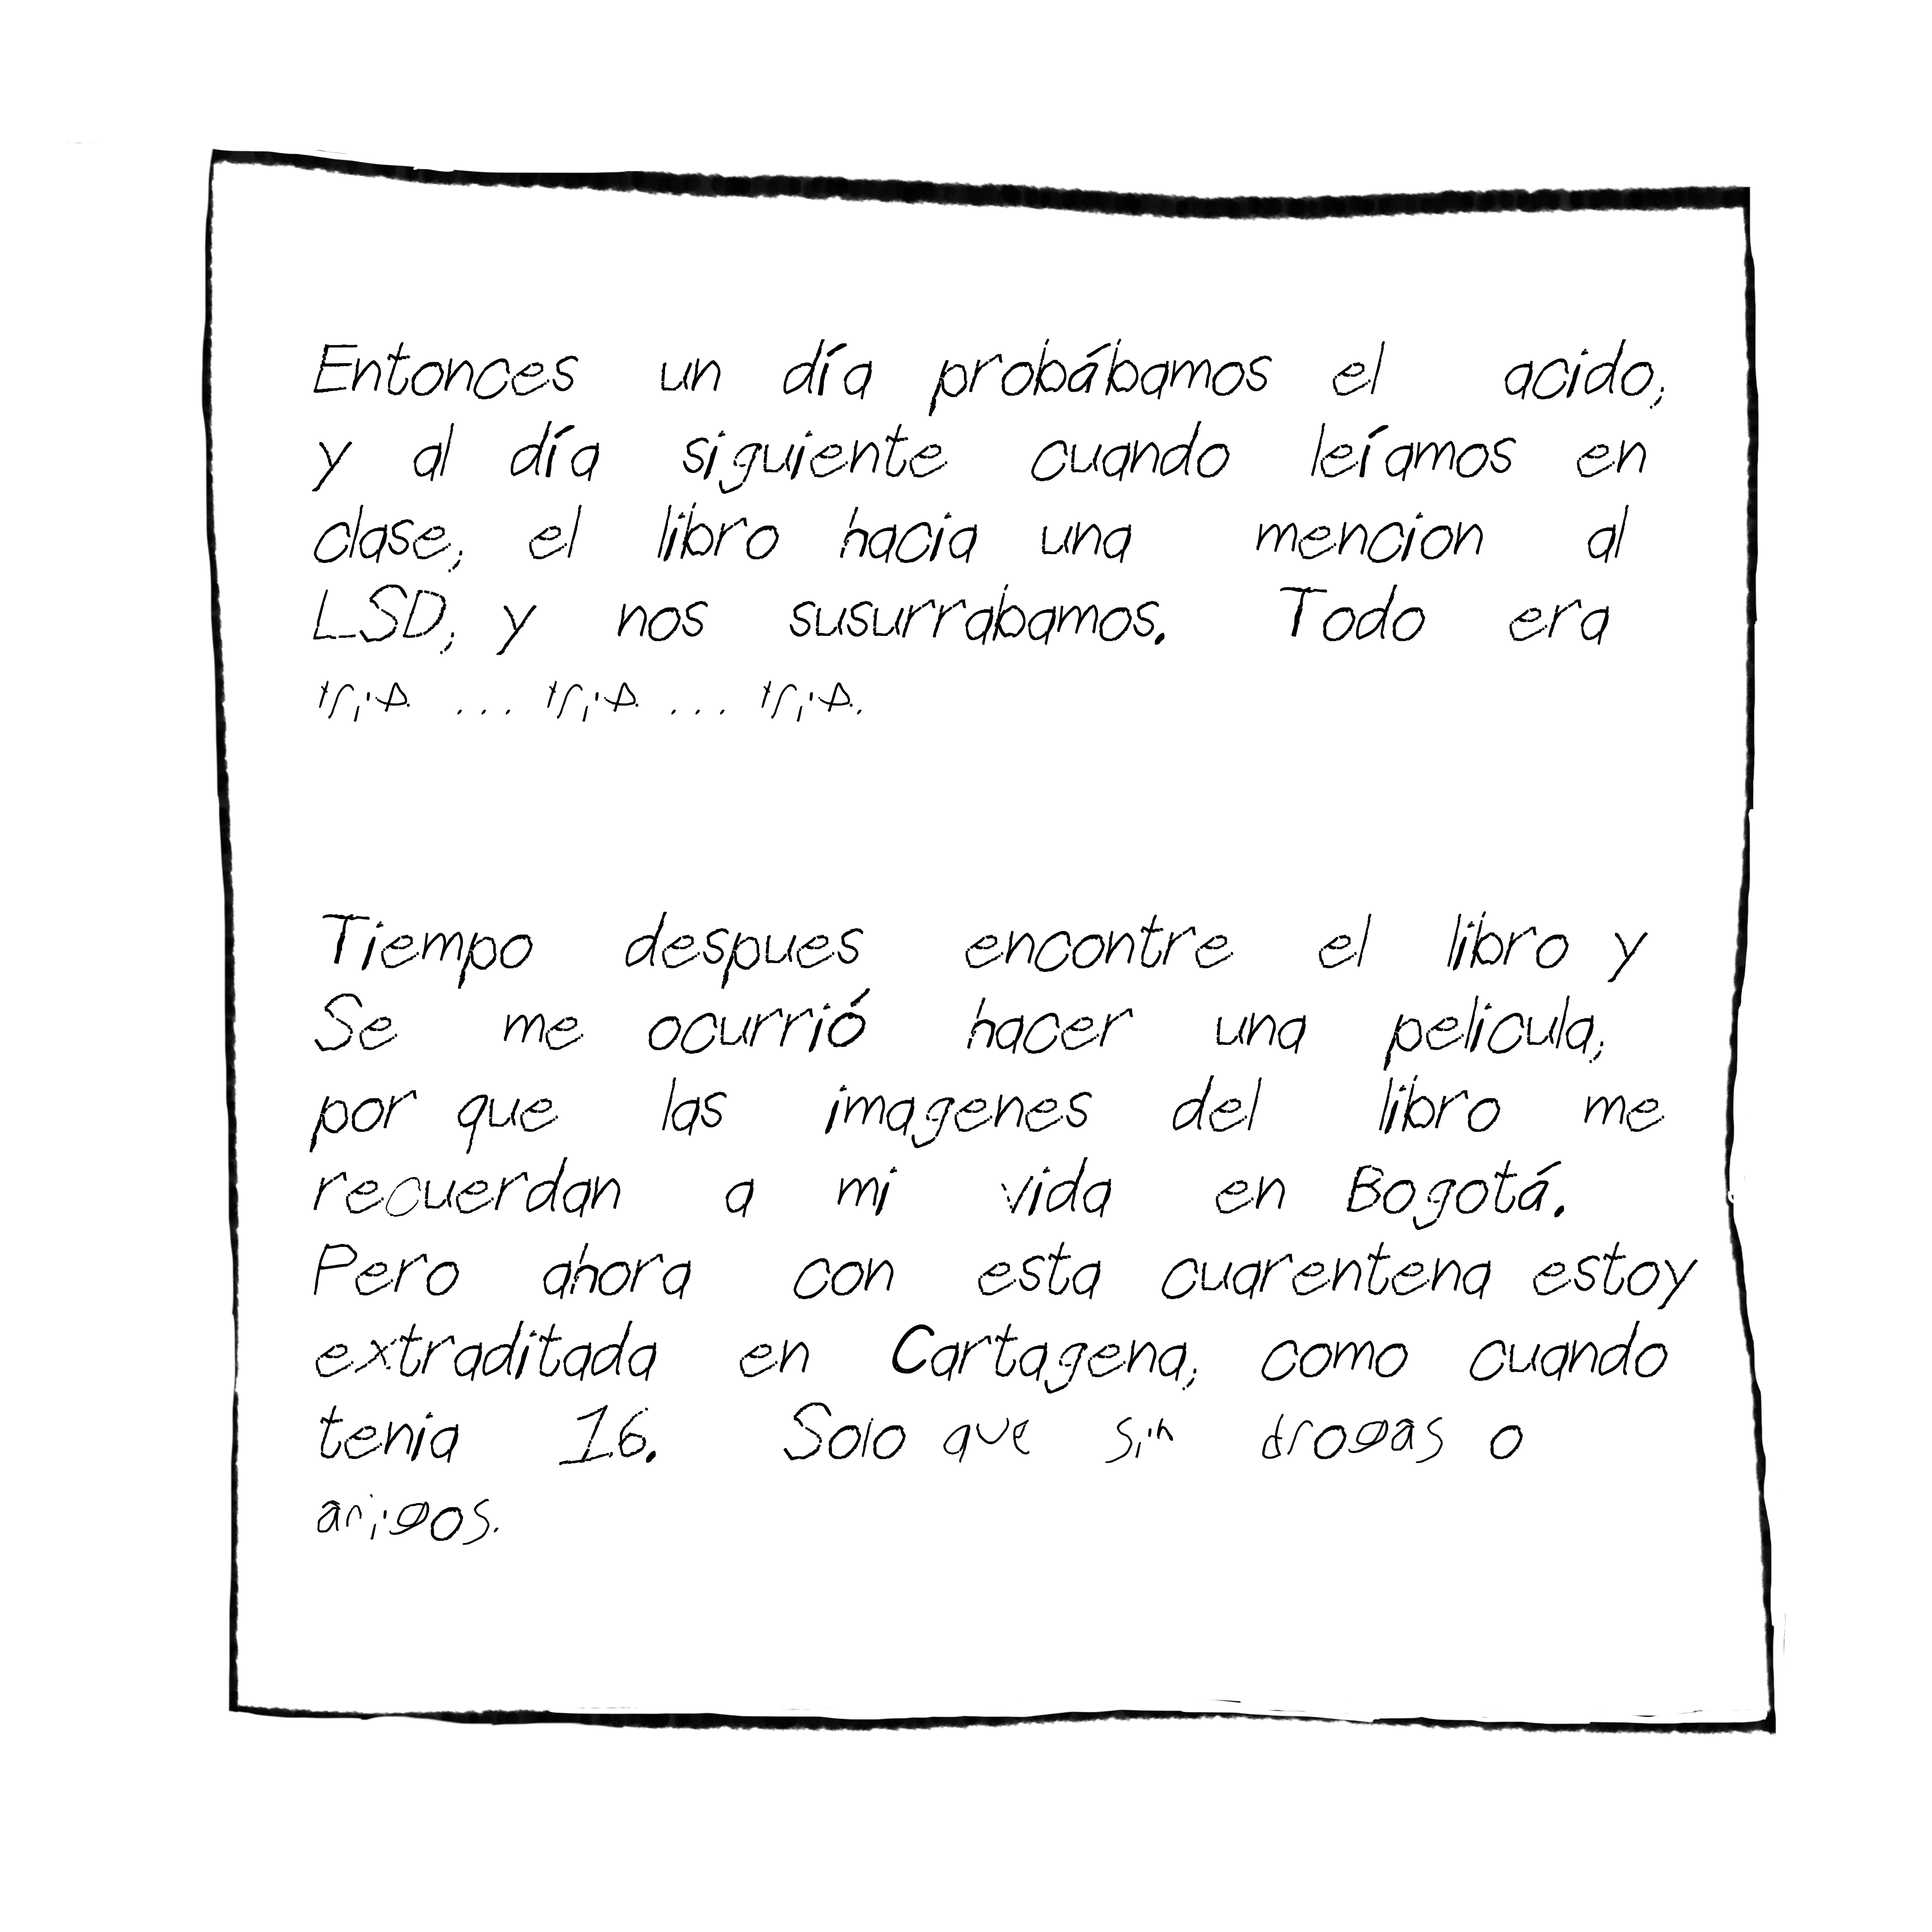 Entonces un día probábamos el acido,
y al día siguiente cuando leíamos en
clase, el libro hacia una mencion al
LSD, y nos susurrabamos. Todo era
trip. ... trip. ... trip.
Tiempo despues encontre el libro y
Se me ocurrió hacer una pelicula,
por que las imagenes del libro me
recuerdan a mi vida en Bogotá.
Pero ahora con esta cuarentena estoy
extraditada en Cartagena, como cuando
tenia 16. Solo que sin drogas o
amigos.